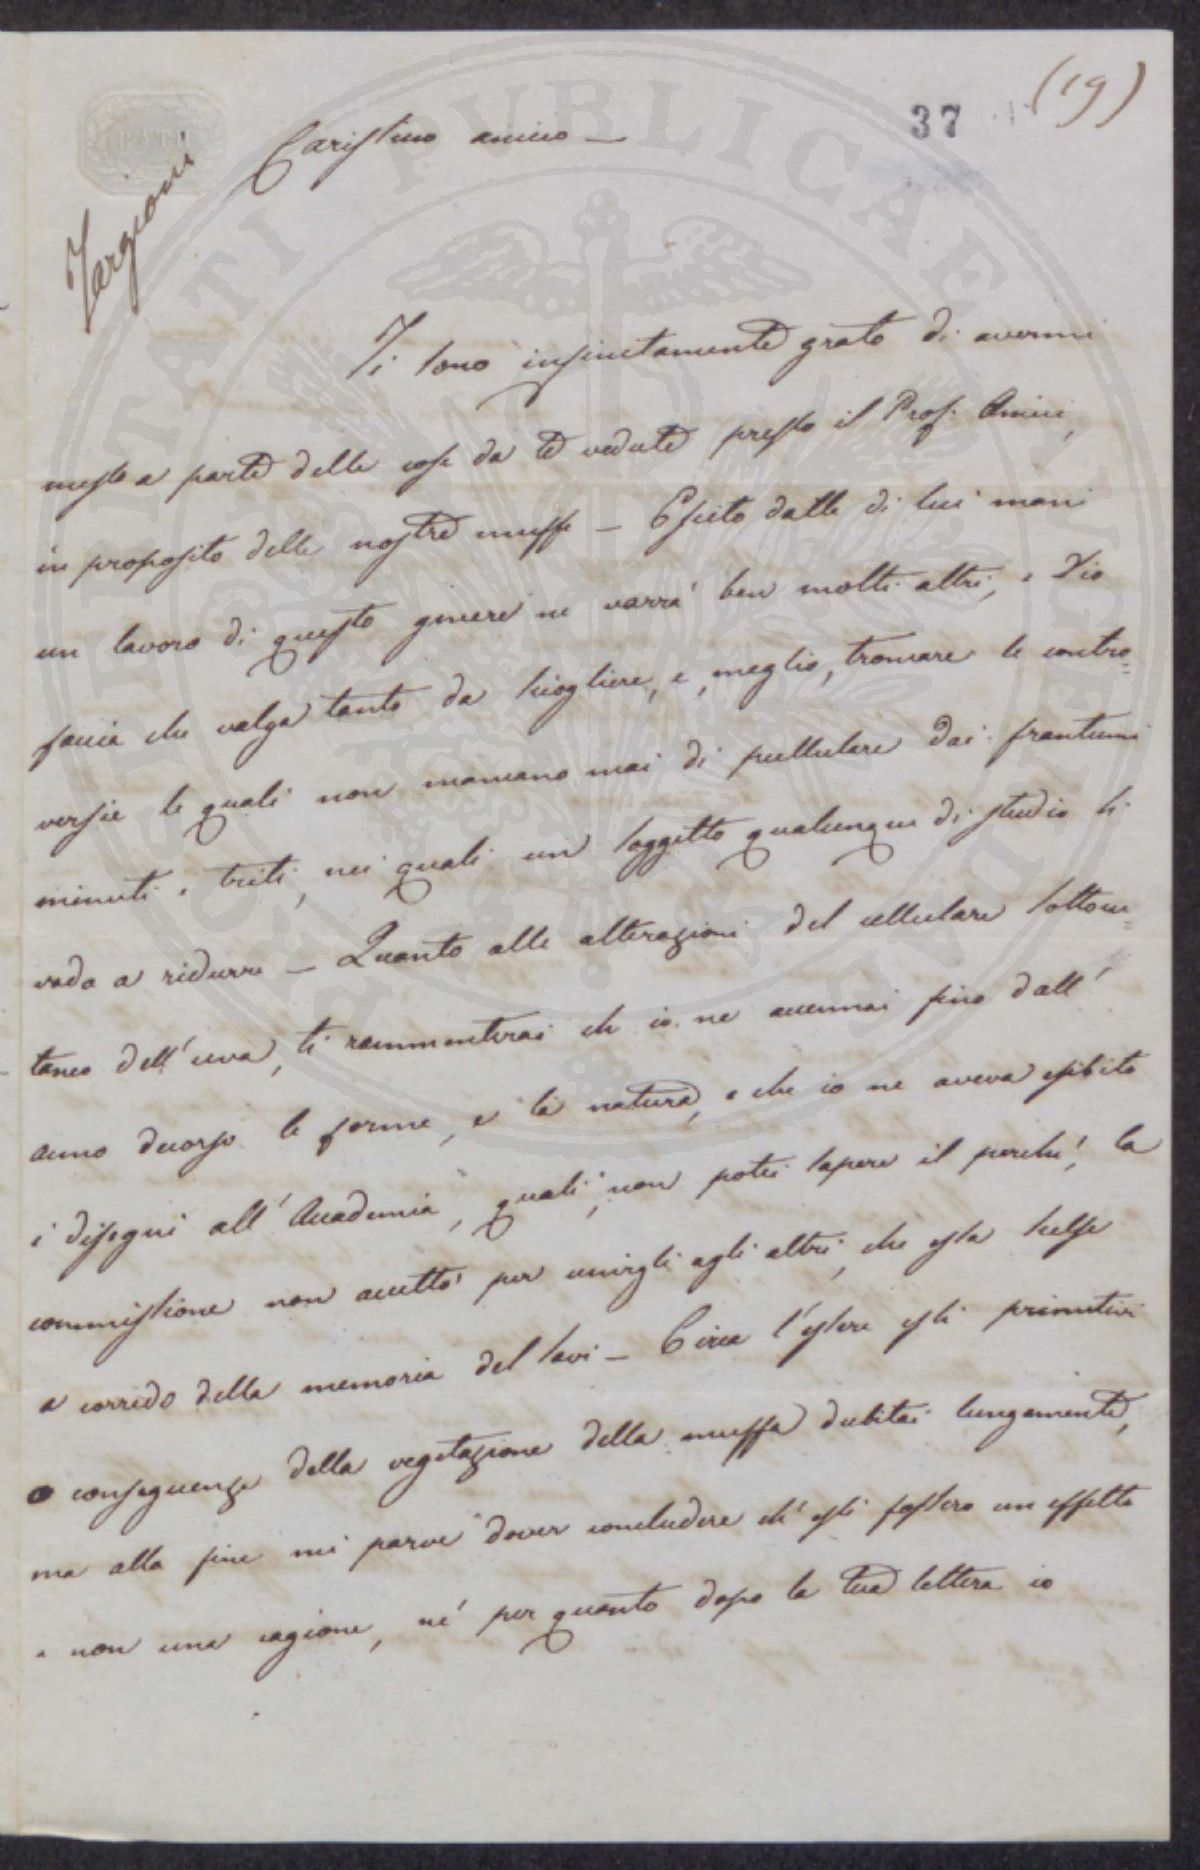 (19)
37
Targioni
Carissimo amico —
Ti sono infinitamente grato di avermi
messo a parte delle cose da te vedute presso il Prof. Amici,
in proposito delle nostre muffe — Escito dalle di lui mani
un lavoro di questo genere ne varrà ben molti altri, e Dio
faccia che valga tanto da sciogliere, e, meglio, troncare le contro=
versie le quali non mancano mai di pullulare dai frantumi
minuti e triti, nei quali un soggetto qualunque di studio si
vada a ridurre — Quanto alle alterazioni del cellulare sottocu=
taneo dell'uva, ti rammenterai ch io ne accennai fino dall'
anno decorso le forme, e la natura, e che io ne aveva esibito
i disegni all'Accademia, quali, non potei sapere il perchè, la
commissione non accettò per unirgli agli altri, che essa scelse
a corredo della memoria del Savi — Circa l'essere essi primitivi
o conseguenze della vegetazione della muffa dubitai lungamente,
ma alla fine mi parve dover concludere ch'essi fossero un effetto
e non una cagione, nè per quanto dopo la tua lettera io
PUBLICAE